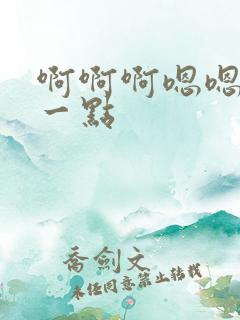 啊啊啊嗯嗯
一點
喬劍文
未经同意禁止转载